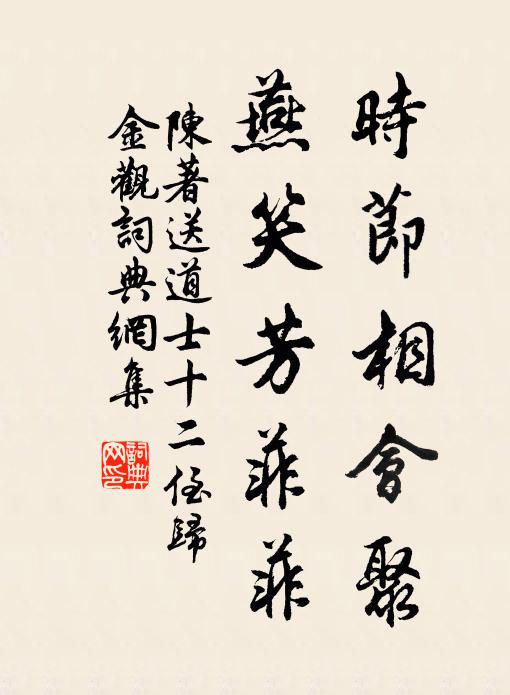 時節相會聚
燕笑芳菲菲
陳著送道士十二侄歸
金觀詞典網集
詞典网印